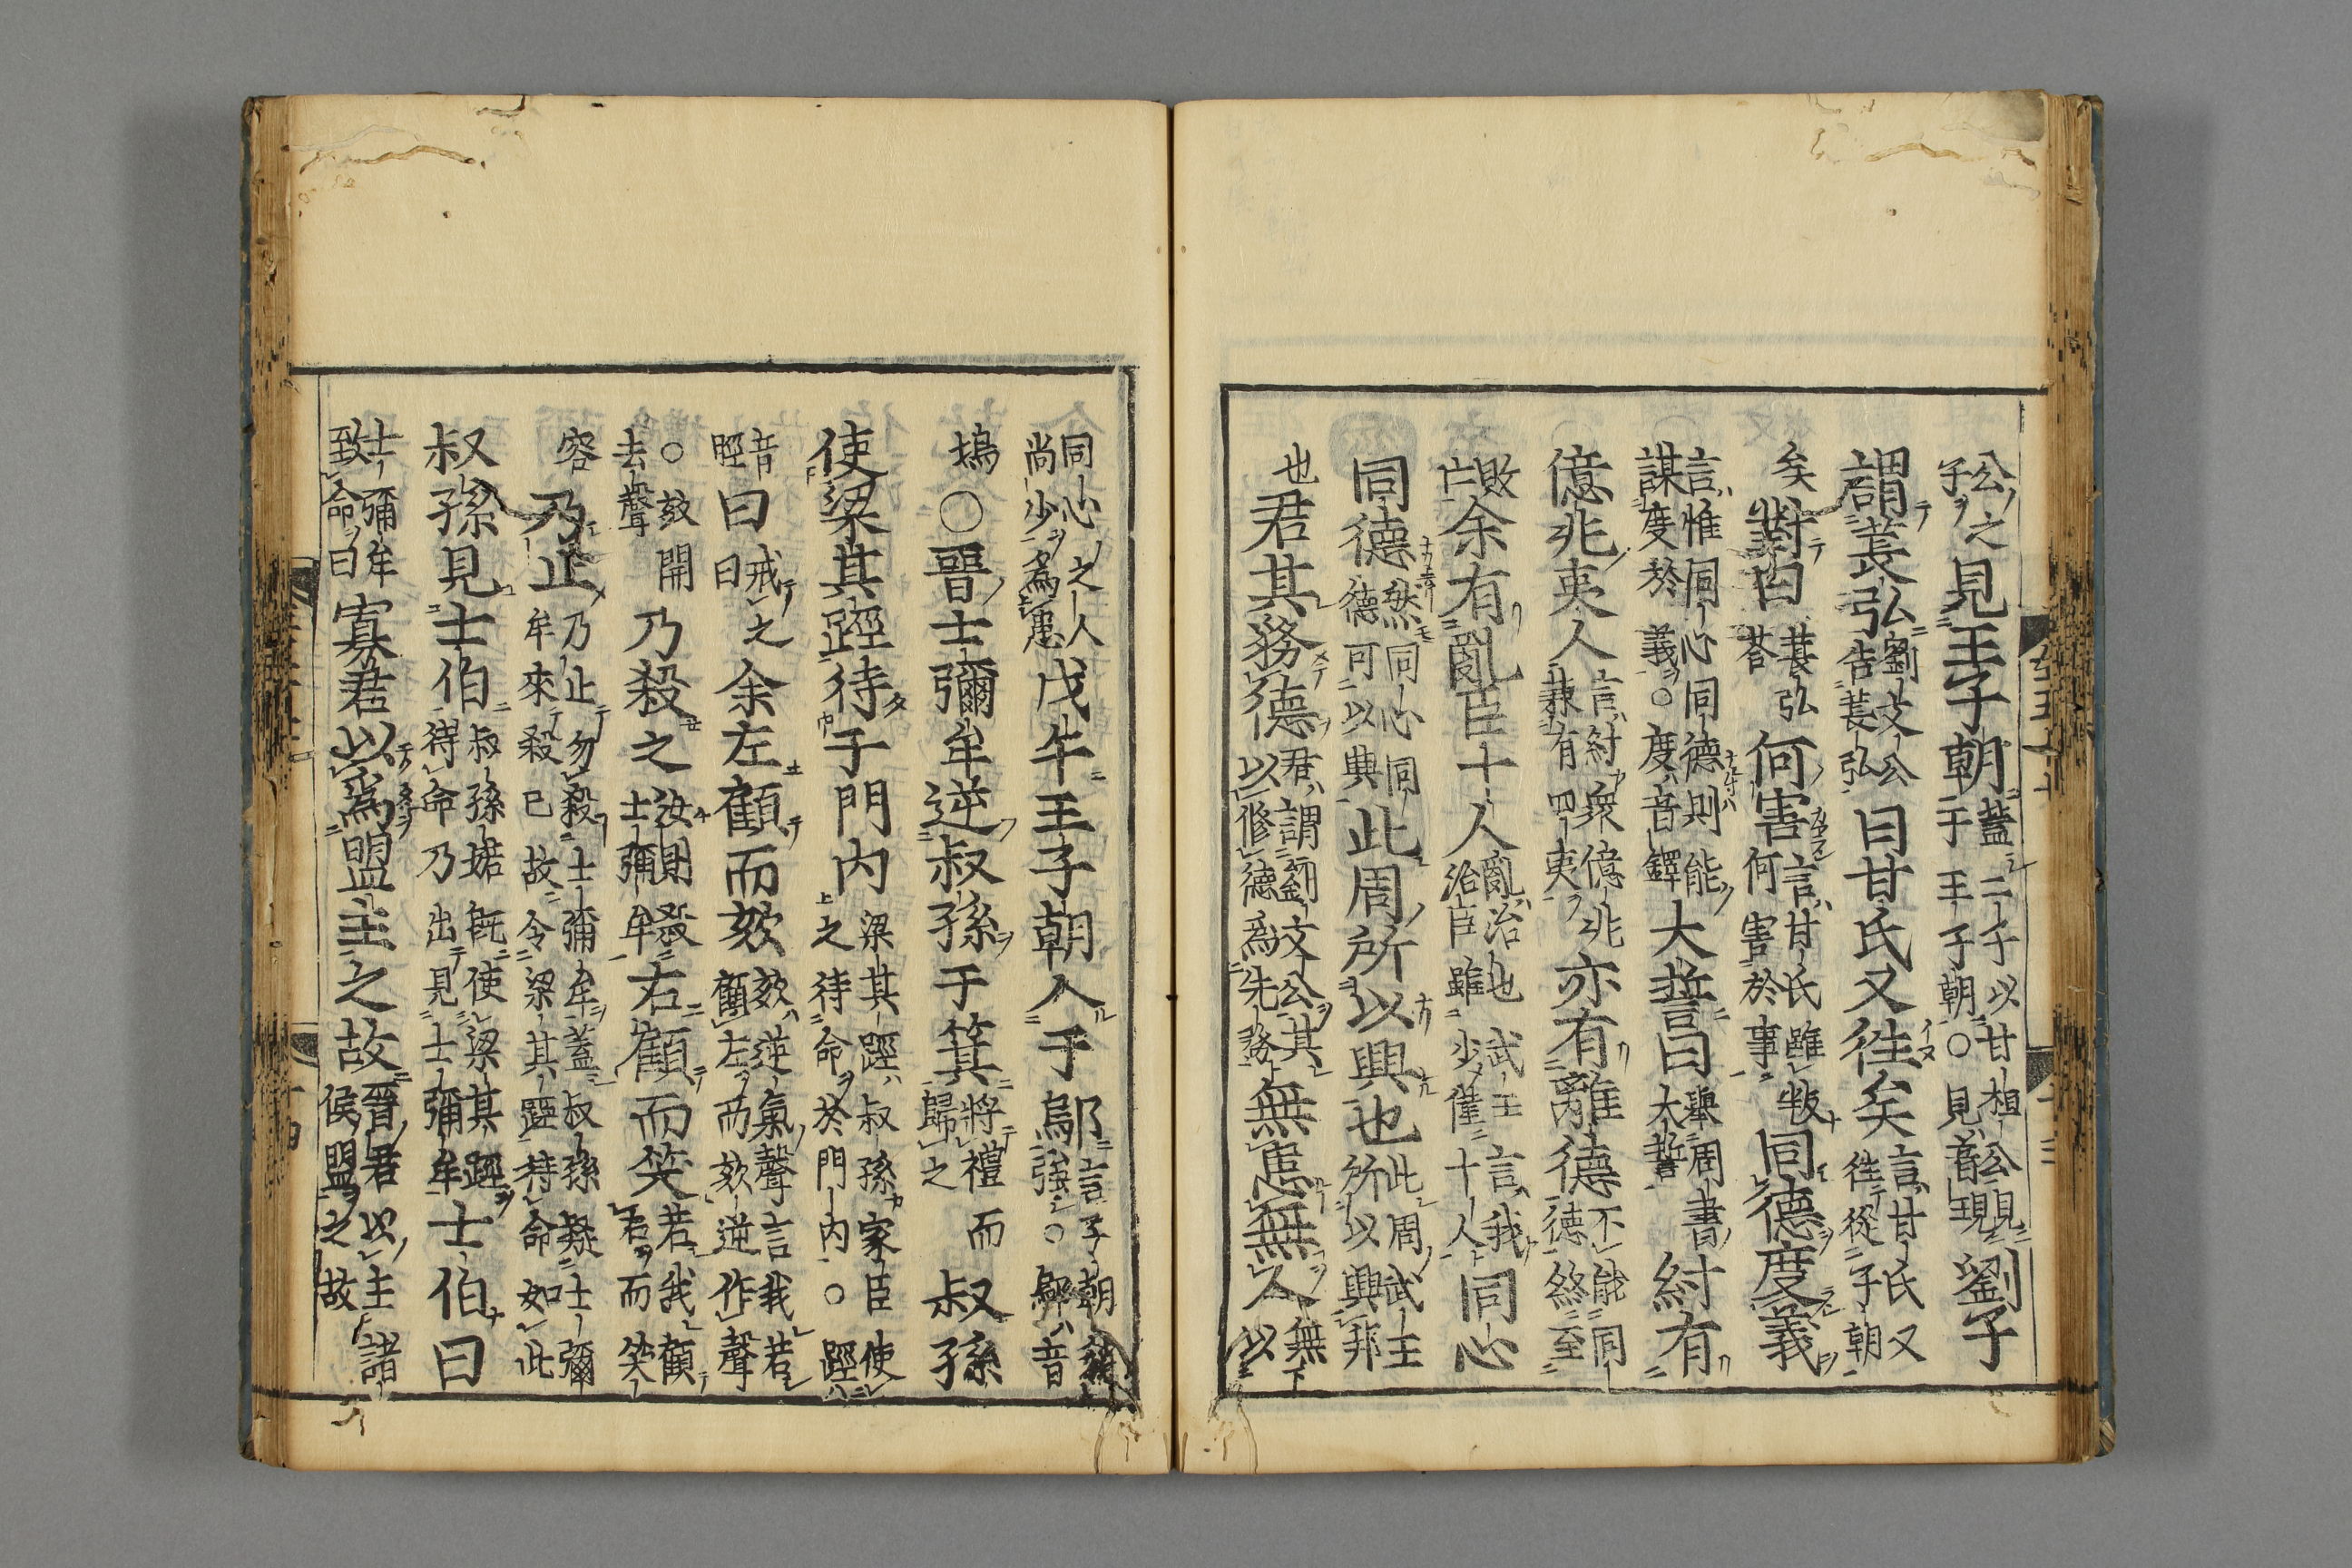 公之子見王子朝蓋二子以甘桓公見于王子朝○見音現劉子
謂萇弘劉文公告萇弘曰甘氏又往矣言甘氏又往從子朝
矣對曰萇弘荅何害言甘氏雖叛何害於事同德度義
言惟同心同德則能謀度於義○度音鐸大誓曰舉周書大誓紂有
億兆夷人言紂衆億兆兼有四夷亦有離德不能同德終至
敗亡余有亂臣十人亂治也武王言我治臣雖少僅十人同心
同德然同心同德可以興此周所以興也此周武王所以興邦
也君其務德君謂劉文公其以脩德爲先務無患無人無下以
同心之人尚少爲患戊午王子朝入于鄔言子朝稍強○鄔音
塢○晉士彌牟逆叔孫于箕將禮而歸之叔孫
使梁其踁待于門内梁其踁叔孫家臣使之待命於門内○踁
音脛曰戒之曰余左顧而欬欬逆氣聲言我若顧左而欬逆作聲
○欬開去聲乃殺之汝則殺士彌牟右顧而笑若我顧右而笑
容乃止乃止勿殺士彌牟蓋叔孫疑士彌牟來殺已故令梁其踁待命如此
叔孫見士伯叔孫婼既使梁其踁待命乃出見士彌牟士伯曰
士彌牟致命曰寡君以爲盟主之故晉君以主諸侯盟之故